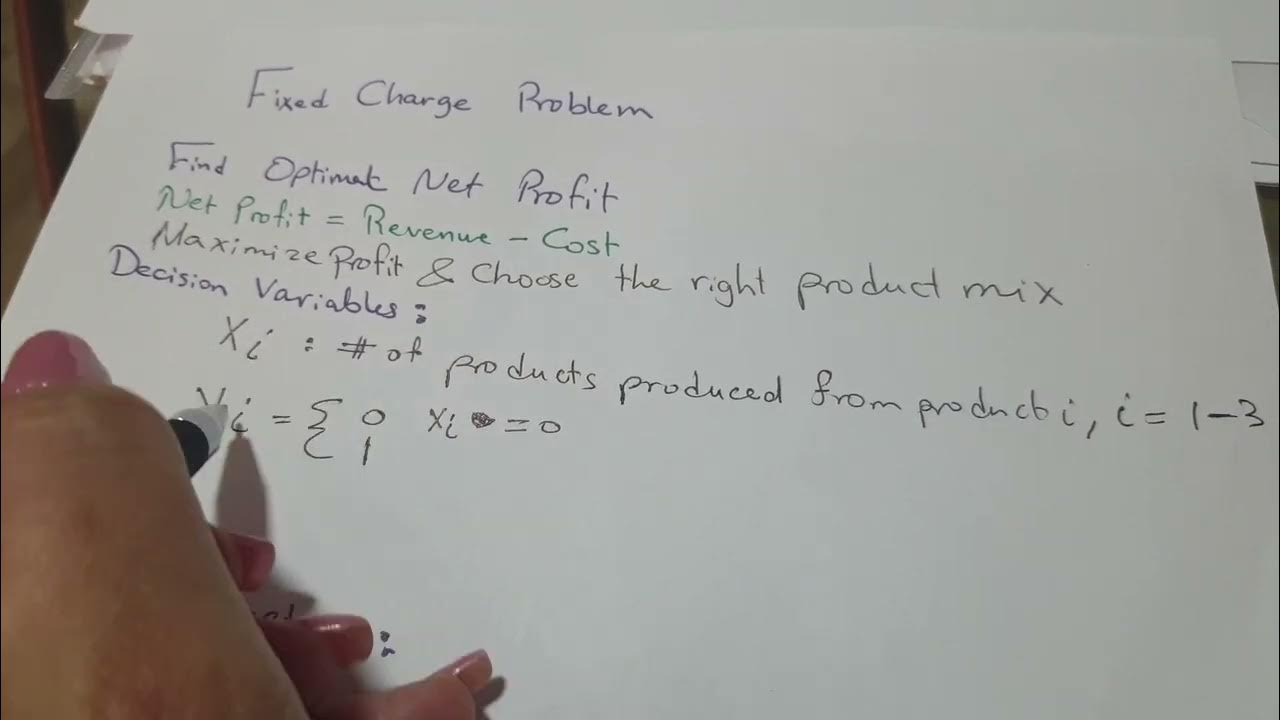 Fixed Charge Problem
Find Optimal Net Profit
Net Profit = Revenue - Cost
Maximize Profit & Choose the right product mix
Decision Variables:
Xi : # of products produced from product i, i = 1-3
Yi = { 0 Xi = 0
1
: